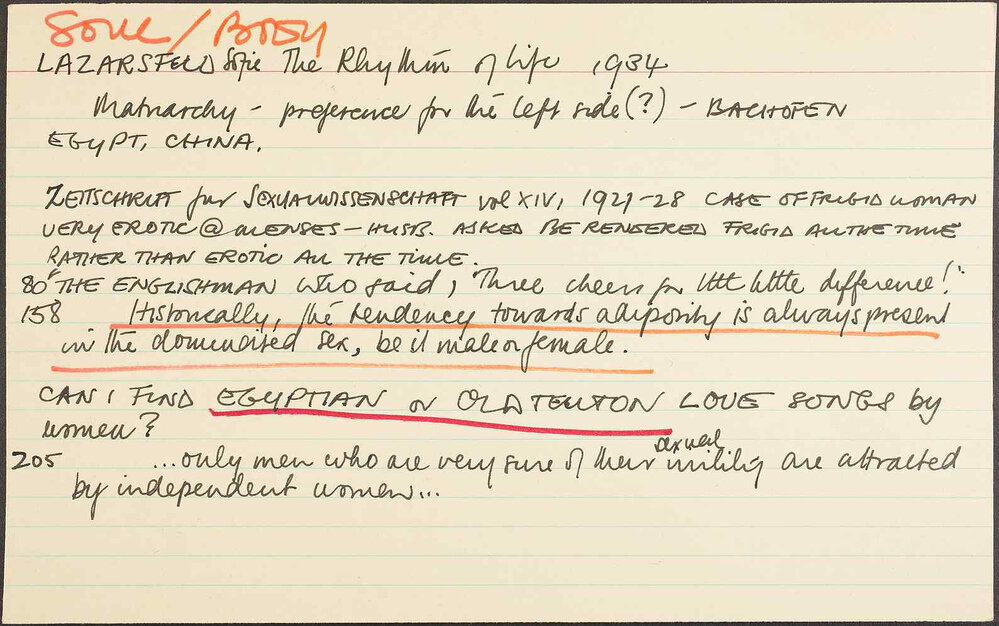 SOUL/BODY
LAZARSFELD Sofie The Rhythm of Life 1934
Matriarchy - preference for the left side (?) - BACHOFEN
EGYPT, CHINA.
ZEITSCHRIFT fur SEXUALWISSENSCHAFT vol XIV, 1927-28 CASE OF FRIGID WOMAN
VERY EROTIC @ MENSES - HUSB. ASKED BE RENDERED FRIGID ALL THE TIME
RATHER THAN EROTIC ALL THE TIME.
80 "THE ENGLISHMAN who said, 'Three cheers for the little difference!'"
158 Historically, the tendency towards adiposity is always present
in the dominated sex, be it male or female.
CAN I FIND EGYPTIAN or OLD TEUTON LOVE SONGS by
women?
205 ...only men who are very sure of their sexual virility are attracted
by independent women...